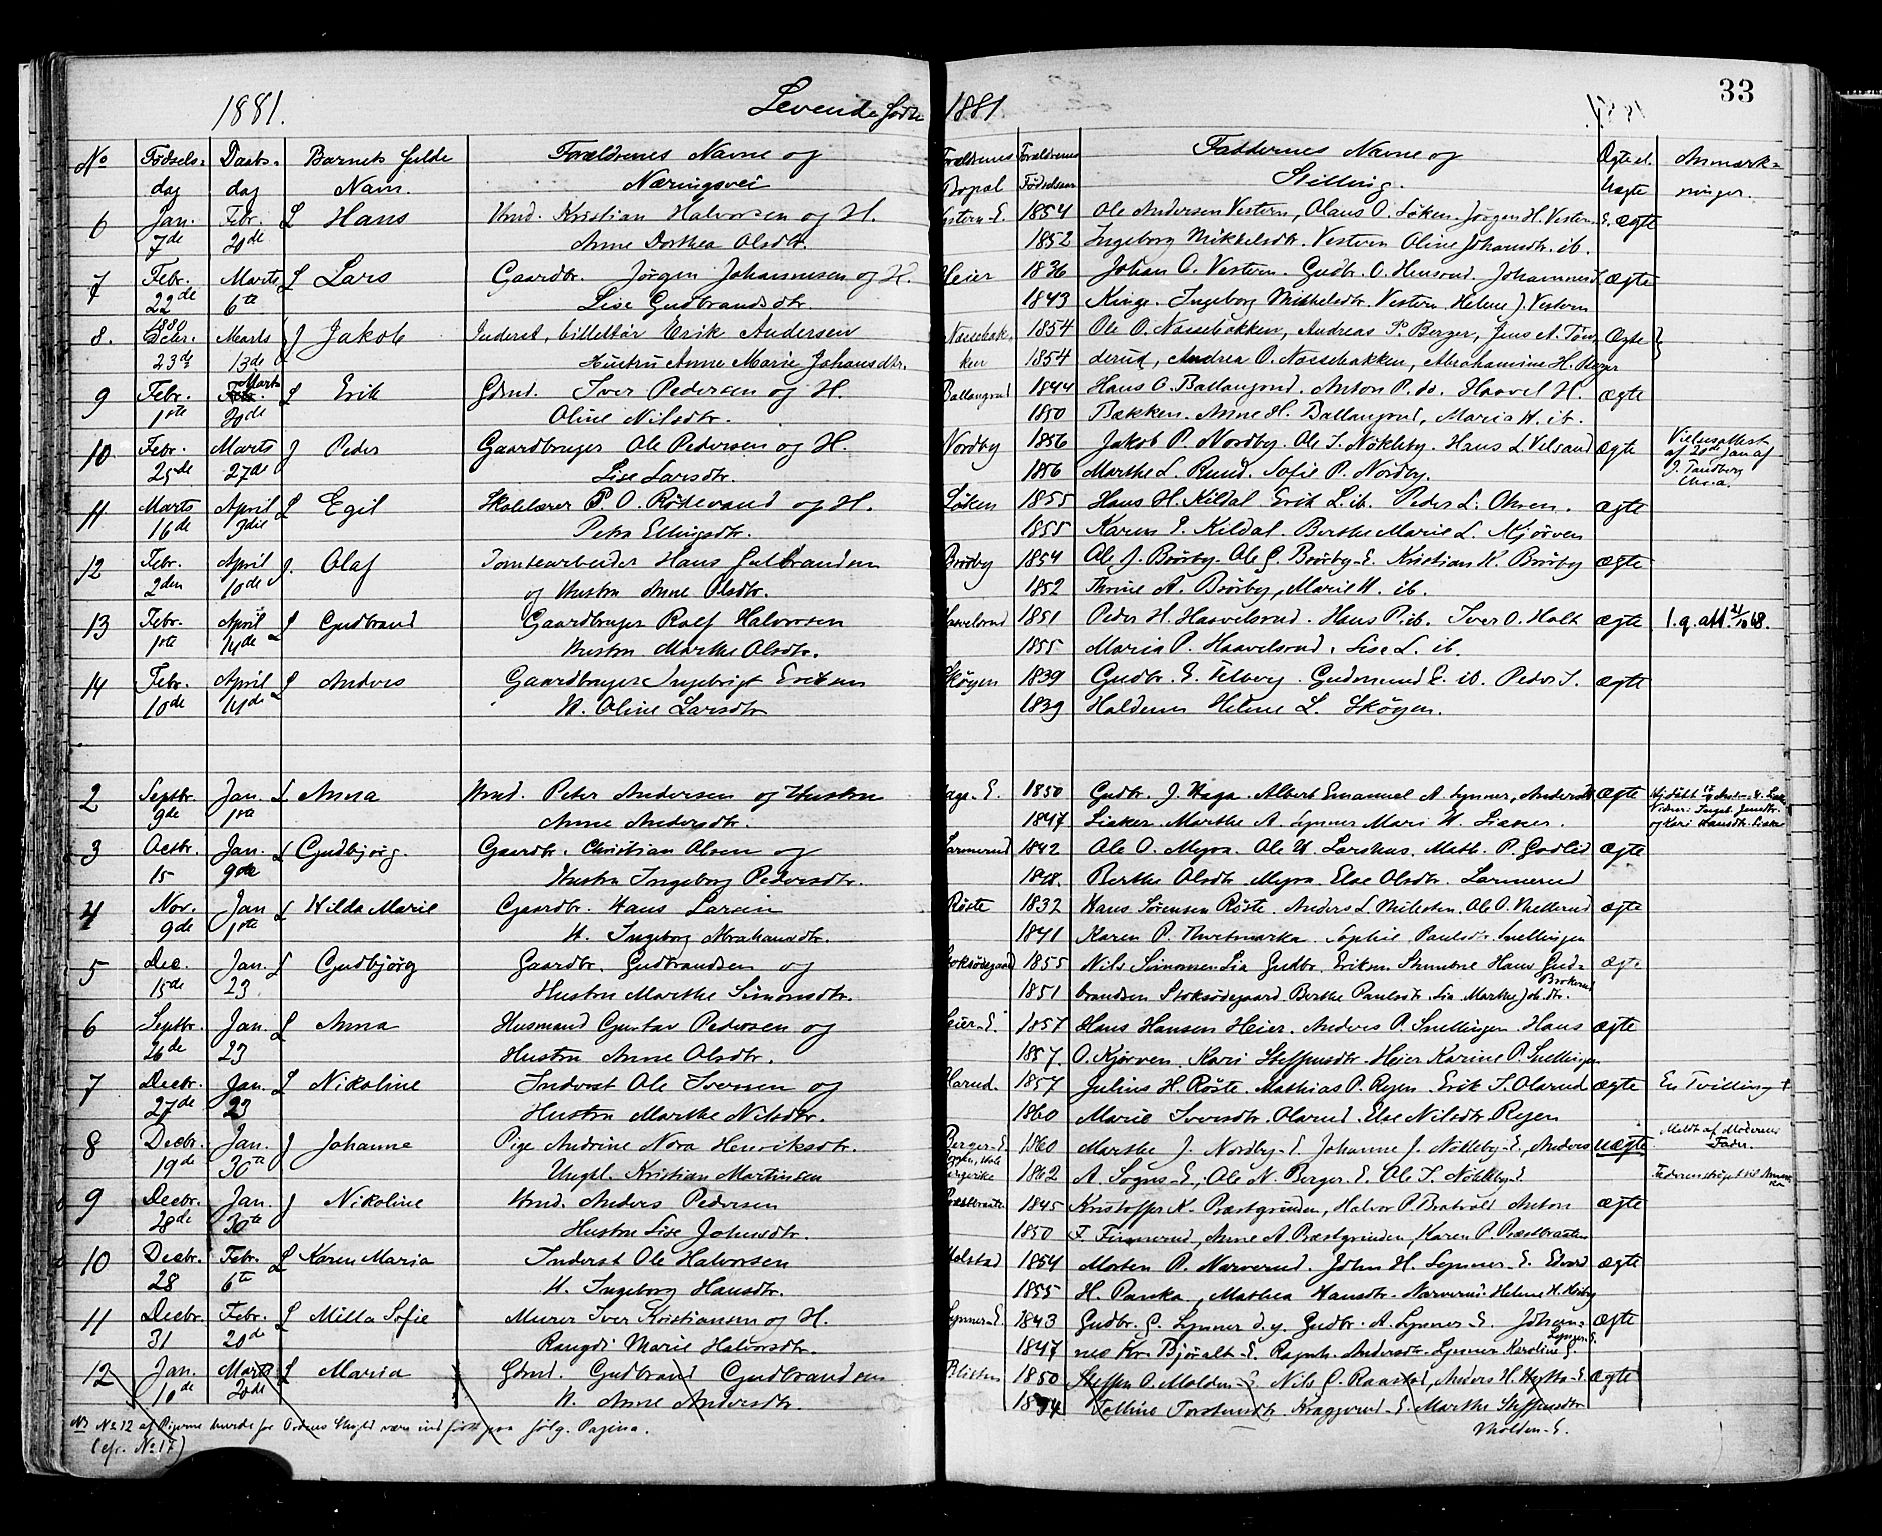 33
1881. Levende fødte 1881
No Fødsels- Daabs- Barnets fulde Forældrenes Navne og Forældrenes Forældrenes Faddernes Navne og Ægte el. Anmærk-
dag dag Navn. Næringsvei Bopæl Fødselsaar Stilling. Uægte ninger.
6 Jan. Febr. L Hans Hmd. Kristian Halvorsen og H. 1854 Ole Andersen Vestern, Olaus O. Løken, Jørgen H. Vestern E. ægte
7de 20de Anne Dorthea Olsdtr. 1852 Ingeborg Mikkelsdtr. Vestern Oline Johansdtr. ib.
7 Febr. Marts L Lars Gaardbr. Jørgen Johannesen og H. Heier 1836 Johan O. Vestern. Gudbr. O. Hensrud. Johannes L. ægte
22de 6te Lise Gudbrandsdtr. 1843 Kinge. Ingeborg Mikkelsdtr. Vestern Helene J. Vestern
8. 1880 Decbr. Marts J Jakob Inderst, billettør Erik Andersen Næssebak- 1854 Ole O. Næssebakken, Andreas P. Berger, Jens A. Tøn- Ægte
23de 13de Hustru Anne Marie Johansdtr. ken 1854 derud, Andrea O. Næssebakken, Abrahamine H. Berger
9 Febr. Marts L Erik Gbmd. Iver Pedersen og H. Ballangrud 1844 Hans O. Ballangrud. Anton P. do. Haavel H. ægte
1ste 20de Oline Nilsdtr. 1850 Bækken. Anne H. Ballangrud, Maria H. ib.
10 Febr. Marts J Peder Gaardbruger Ole Pedersen og H. Nordby 1856 Jakob P. Nordby. Ole I. Nökleby. Hans L. Velsand ægte Vielsesattest
25de 27de Lise Larsdtr. 1856 Marthe L. Rund. Sofie P. Nordby. af 20de Jan af
J. Tandberg
Chr.a.
11 Marts April L Egil Skolelærer P. O. Rødevand og H. Løken 1855 Hans H. Kildal Erik L. ib. Peder L. Ohren. ægte
16de 3die Petra Ellingsdtr. 1855 Karen P. Kildal. Berthe Marie L. Kjørven
12 Febr. April J. Olaf Tomtearbeider Hans Gulbrandsen Brørby 1854 Ole J. Brørby. Ole G. Brørby-E. Kristian K. Brørby ægte
2den 10de og Hustru Anne Olsdtr. 1852 Thrine A. Brørby, Marie H. ib.
13 Febr. April L Gudbrand Gaardbruger Rolf Halvorsen Haavelsrud 1851 Peder H. Haavelsrud. Hans P. ib. Iver O. Holt ægte
1ste 14de Hustru Marthe Olsdtr. 1855 Maria P. Haavelsrud, Lise L. ib.
14 Febr. April L Anders Gaardbruger Ingebrigt Eriksen Skøyen 1839 Gudbr. E. Velberg. Gudmund E. ib. Peder I. ægte
10de 14de H. Oline Larsdtr 1839 Haldenn Helene L. Skøyen.
2 Septbr. Jan. L Anna Hmd. Peter Andersen og Hustru Haga-E. 1850 Gudbr. J. Haga. Albert Emanuel A. Lynner, Anders ægte
9de 1ste Anne Andersdtr. 1847 Liaker. Marthe A. Lynner Mari H. Liaker. og Kari Hansdtr. Liaker
3 Octbr. Jan. L Gudbjørg. Gaardbr. Christian Olsen og Larmerud 1842 Ole O. Myra. Ole H. Larshus. Math. P. Godlid ægte
15 9de Hustru Ingeborg Pedersdtr. 1848. Berthe Olsdtr. Myra. Else Olsdtr. Larmerud
4 Nov. Jan L Hilda Marie Gaardbr. Hans Larsen Røste 1832 Hans Sørensen Røste. Anders L. Milesten. Ole O. Mellerud ægte
9de 1ste H. Ingeborg Abrahamsdtr. 1841 Karen P. Thvetmarka. Sophie Paulsdtr. Snellingen
5 Dec. Jan. L Gudbjørg Gaardbr. Gudbrandsen og Stoksødegaard 1855 Nils Simonsen Lia Gudbr. Eriksen Hans Gud- ægte
15de 23 Hustru Marthe Simonsdtr. 1851 brandsen Stoksødegaard Berthe Paulsdtr. Lia Marthe Joh.dtr.
6 Septbr. Jan. L Anna Husmand Gustav Pedersen og Heier-E. 1857 Hans Hansen Heier. Anders P. Snellingen Hans ægte
26de 23 Hustru Anne Olsdtr. 1857. O. Kjørven. Kari Steffensdtr. Heier Karine P. Snellingen
7 Decbr. Jan. L Nikoline Inderst Ole Iversen og Olarud. 1857 Julius H. Røste. Mathias P. Ryen. Erik I. Olarud ægte En Tvilling
27de 23 Hustru Marthe Nilsdtr. 1860 Marie Iversdtr. Olarud. Else Nilsdtr Ryen
8 Decbr. Jan. J Johanne Pige Andrine Nora Henriksdtr. Berger-E. 1860 Marthe J. Nordby-E. Johanne J. Nökleby-E., Anders uægte Meldt af Moderens Fader
19de 30te Ungkl. Kristian Martinsen 1862 A. Sogns-E., Ole N. Berger-E. Ole I. Nökleby-E.
9 Decbr. Jan. J Nikoline Hmd. Anders Pedersen Præstbraaten 1845 Kristoffer K. Præstgrinden, Halvor P. Bratvold Anton ægte
28de 30te Hustru Lise Johnsdtr. 1850 F. Finnerud, Anne A. Præstgrinden, Karen P. Præstbraaten
10 Decbr. Febr. L Karen Maria Inderst Ole Halvorsen Molstad 1854 Morten P. Narverud. John H. Lynner-E. Edvard ægte
28 6te H. Ingeborg Hansdtr. 1855 H. Paaska, Mathea Hansdtr. Narverud Helene H.
11 Decbr. Febr. L Milla Sofie Murer Iver Kristiansen og H. Lynner-E. 1843 Gudbr. G. Lynner d.y. Gudbr. A. Lynner-E. Johan- ægte
31 20de Rangdi Marie Halvorsdtr. 1847 nes Kr. Bjøralt-E. Ragnh. Andersdtr. Lynner Karoline G. Lynner-E.
12 Jan. Marts L Maria Gbmd. Gudbrand Gudbrandsen Blisten 1850 Steffen O. Molden-E. Nils G. Raastad, Anders H. Hytta-E. Ægte
10de 20de H. Anne Andersdtr. 1854 Torstensdtr. Kraggerud-E. Marthe Steffensdtr
Molden-E.
NB No 12 af Pigerne burde for Ordens Skyld være indført paa følg. Pagina.
(cfr. No 17)